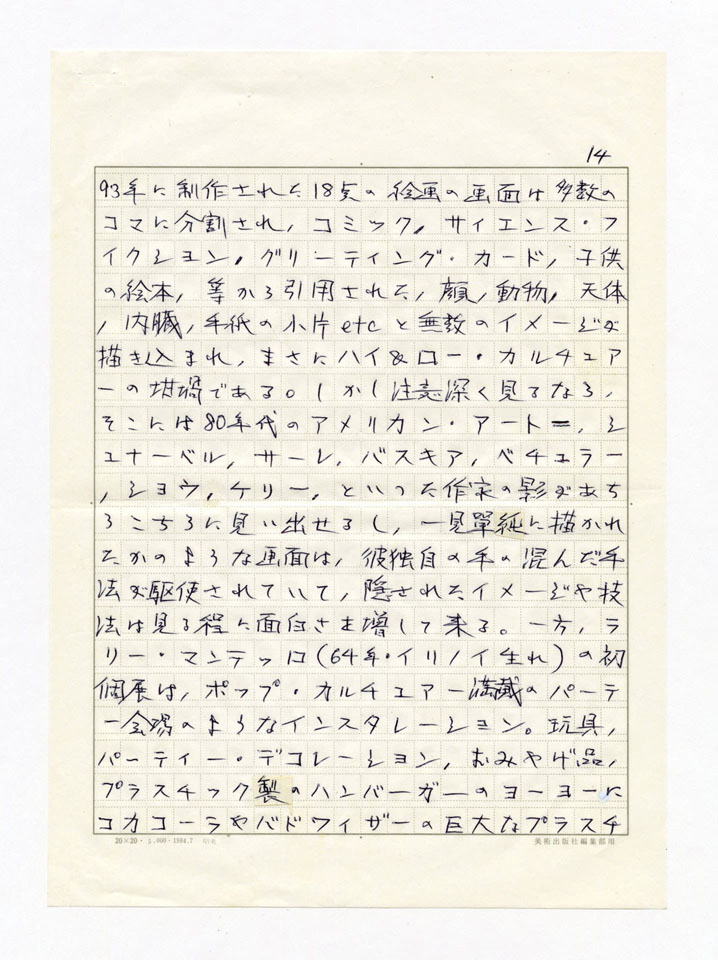 14
93年に制作された18点の絵画の画面は多数の
コマに分割され,コミック,サイエンス・フ
ィクション,グリーティング・カード,子供
の絵本,等から引用された,顔,動物,天体
,内臓,手紙の小片etcと無数のイメージが
描き込まれ,まさにハイ&ロー・カルチュア
ーの坩堝である。しかし注意深く見るなら,
そこには80年代のアメリカン・アートー,シ
ュナーベル,サーレ,バスキア,ベチュラー
,ショウ,ケリー,といった作家の影があち
らこちらに見い出せるし,一見單純に描かれ
たかのような画面は,彼独自の手の混んだ手
法が駆使されていて,隠されたイメージや技
法は見る程に面白さを増して来る。一方,ラ
リー・マンテッロ(64年・イリノイ生れ)の初
個展は,ポップ・カルチュアー満載のパーテ
ー会場のようなインスタレーション。玩具,
パーティー・デコレーション,おみやげ品,
プラスチック製のハンバーガーのヨーヨーに
コカコーラやバドワイザーの巨大なプラスチ
20×20・5,000・1984.7 美術出版社編集部用